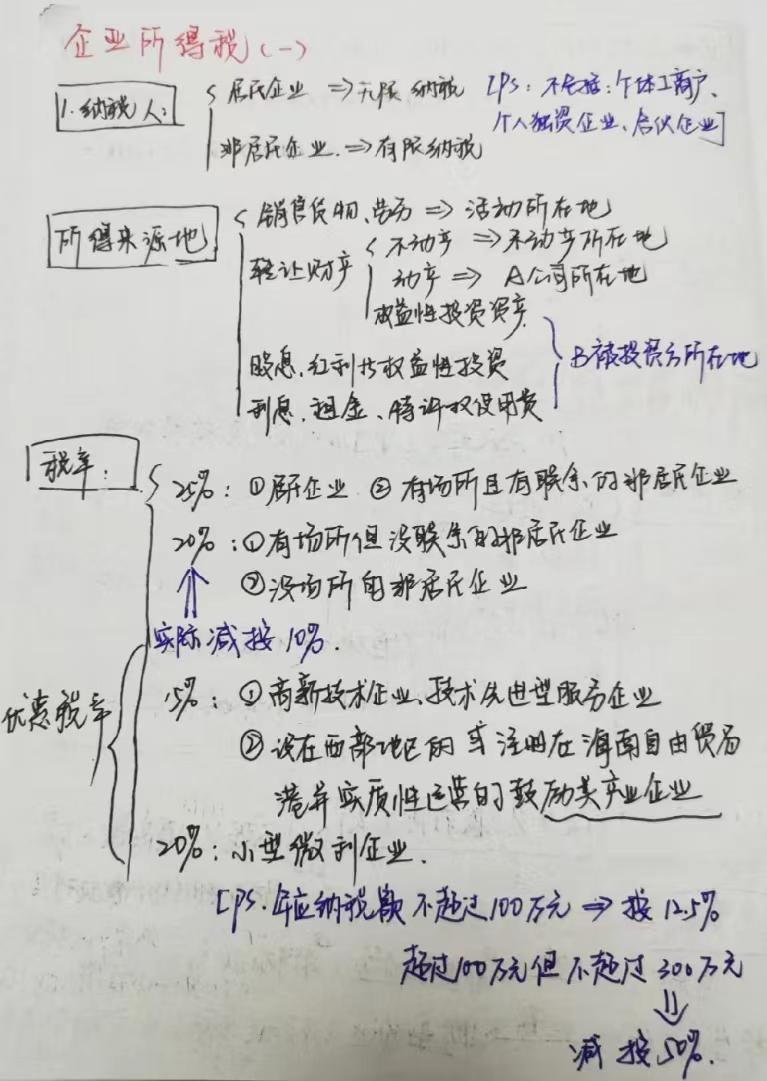 企业所得税(一)
1.纳税人:
居民企业 ⇒ 无限纳税 [PS: 不包括:个体工商户、
个人独资企业、合伙企业]
非居民企业 ⇒ 有限纳税
所得来源地
销售货物、劳务 ⇒ 活动所在地
转让财产
不动产 ⇒ 不动产所在地
动产 ⇒ A公司所在地
权益性投资资产
股息、红利等权益性投资
B被投资方所在地
利息、租金、特许权使用费
税率:
25%: ①居民企业 ②有场所且有联系的非居民企业
20%: ①有场所但没联系的非居民企业
②没场所的非居民企业
实际减按10%.
优惠税率
15%: ①高新技术企业、技术先进型服务企业
②设在西部地区的或注册在海南自由贸易
港并实质性运营的鼓励类产业企业
20%: 小型微利企业.
[PS: 年应纳税额不超过100万元 ⇒ 按12.5%
超过100万元但不超过300万元
⇓
减按50%.